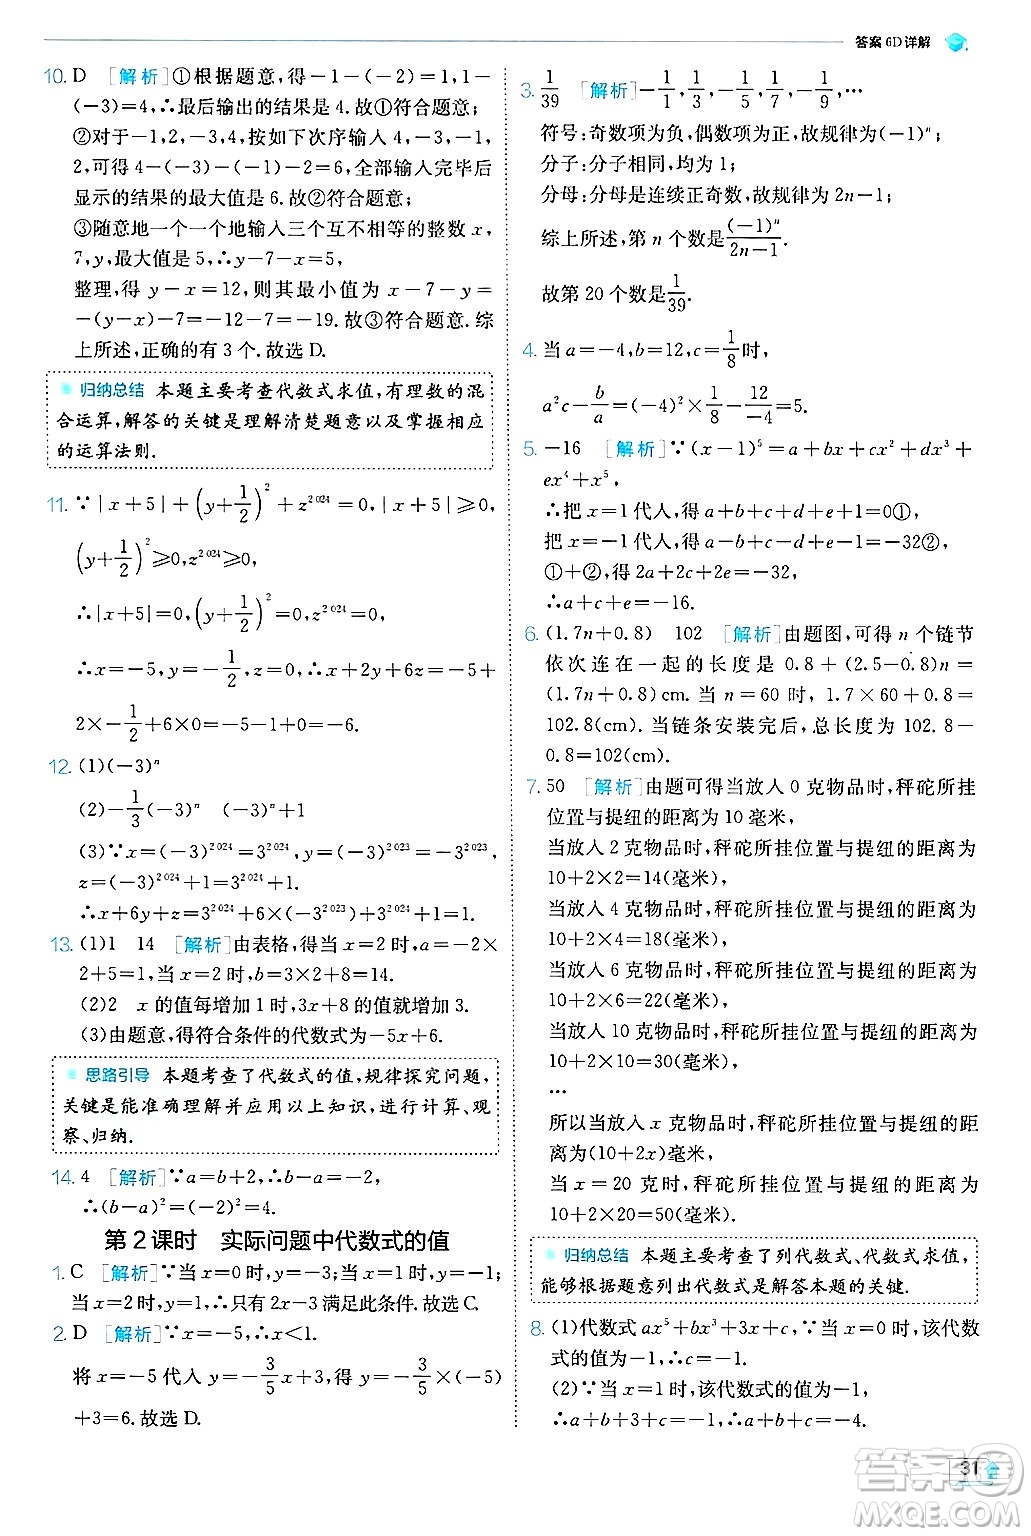 答案 6D 详解
10. D [解析]①根据题意，得－1－(－3)＝2,1－
(－3)＝4,∴最后输出的结果是 4. 故①符合题意;
②对于－1,2,－3,4,按如下次序输入 4,－3,－1,
2,可得 4－(－3)－(－1)－2＝6,全部输入完毕后
显示的结果的最大值是 6. 故②符合题意;
③随意地一个一个地输入三个互不相等的整数 x,
7,y,最大值是 5,∴y－7－x＝5,
整理,得 y－x＝12,则其最小值为 x－7－y＝
－(y－x)－7＝－12－7＝－19. 故③符合题意. 综
上所述,正确的有 3 个. 故选 D.
归纳总结 本题主要考查代数式求值,有理数的混
合运算,解答的关键是理解清楚题意以及掌握相应
的运算法则.
11. ∵|x＋5|＋(y＋1/2)²＋z²⁰²⁴＝0,|x＋5|⩾0,
(y＋1/2)²⩾0,z²⁰²⁴⩾0,
∴|x＋5|＝0,(y＋1/2)²＝0,z²⁰²⁴＝0,
∴x＝－5,y＝－1/2,z＝0,∴2x＋4y＋6z＝－5×
2×－1/2＋6×0＝－6.
12. (1)(－3)ⁿ
(2)－1/3(－3)ⁿ (－3)ⁿ＋1
(3)∵x＝(－3)²⁰²⁴＝3²⁰²⁴,y＝(－3)²⁰²³＝－3²⁰²³,
z＝(－3)²⁰²⁴＋1＝3²⁰²⁴＋1.
∴x＋6y＋z＝3²⁰²⁴＋6×(－3²⁰²³)＋3²⁰²⁴＋1＝1.
13. (1)1 14 [解析]由表格,得当 x＝2 时,a＝－2×
2＋5＝1,当 x＝2 时,b＝3×2＋8＝14.
(2)2 x 的值每增加 1 时,3x＋8 的值就增加 3.
(3)由题意,得符合条件的代数式为－5x＋6.
思路引导 本题考查了代数式的值,规律探究问题,
关键是能准确理解并应用以上知识,进行计算、观
察、归纳.
14. 4 [解析]∵a＝b＋2,∴b－a＝－2,
∴(b－a)²＝(－2)²＝4.
第 2 课时 实际问题中代数式的值
1. C [解析]∵当 x＝0 时,y＝－3;当 x＝1 时,y＝－1;
当 x＝2 时,y＝1,∴只有 2x－3 满足此条件. 故选 C.
2. D [解析]∵x＝－5,∴x＜1.
将 x＝－5 代入 y＝－3/5x＋3,得 y＝－3/5×(－5)
＋3＝6. 故选 D.
3. 1/39 [解析]－1/1,1/3,－1/5,1/7,－1/9,…
符号:奇数项为负,偶数项为正,故规律为(－1)ⁿ;
分子:分子相同,均为 1;
分母:分母是连续正奇数,故规律为 2n－1;
综上所述,第 n 个数是(－1)ⁿ/2n－1.
故第 20 个数是1/39.
4. 当 a＝－4,b＝12,c＝1/8时,
a²c－b/a＝(－4)²×1/8－12/－4＝5.
5. －16 [解析]∵(x－1)⁵＝a＋bx＋cx²＋dx³＋
ex⁴＋x⁵,
∴把 x＝1 代入,得 a＋b＋c＋d＋e＋1＝0①,
把 x＝－1 代入,得 a－b＋c－d＋e－1＝－32②,
①＋②,得 2a＋2c＋2e＝－32,
∴a＋c＋e＝－16.
6. (1.7n＋0.8) 102 [解析]由题图,可得 n 个链节
依次连在一起的长度是 0.8＋(2.5－0.8)n＝
(1.7n＋0.8)cm. 当 n＝60 时,1.7×60＋0.8＝
102.8(cm). 当链条安装完后,总长度为 102.8－
0.8＝102(cm).
7. 50 [解析]由题可得当放入 0 克物品时,秤砣所挂
位置与提纽的距离为 10 毫米,
当放入 2 克物品时,秤砣所挂位置与提纽的距离为
10＋2×2＝14(毫米),
当放入 4 克物品时,秤砣所挂位置与提纽的距离为
10＋2×4＝18(毫米),
当放入 6 克物品时,秤砣所挂位置与提纽的距离为
10＋2×6＝22(毫米),
当放入 10 克物品时,秤砣所挂位置与提纽的距离为
10＋2×10＝30(毫米),
…
所以当放入 x 克物品时,秤砣所挂位置与提纽的距
离为(10＋2x)毫米,
当 x＝20 克时,秤砣所挂位置与提纽的距离为
50 毫米.
归纳总结 本题主要考查了列代数式、代数式求值,
能够根据题意列出代数式是解答本题的关键.
8. (1)代数式 ax⁵＋bx³＋3x＋c,∵当 x＝0 时,该代数
式的值为－1,∴c＝－1.
(2)∵当 x＝1 时,该代数式的值为－1,
∴a＋b＋3＋c＝－1,∴a＋b＋c＝－4.
31
答案圈
MXQE.COM